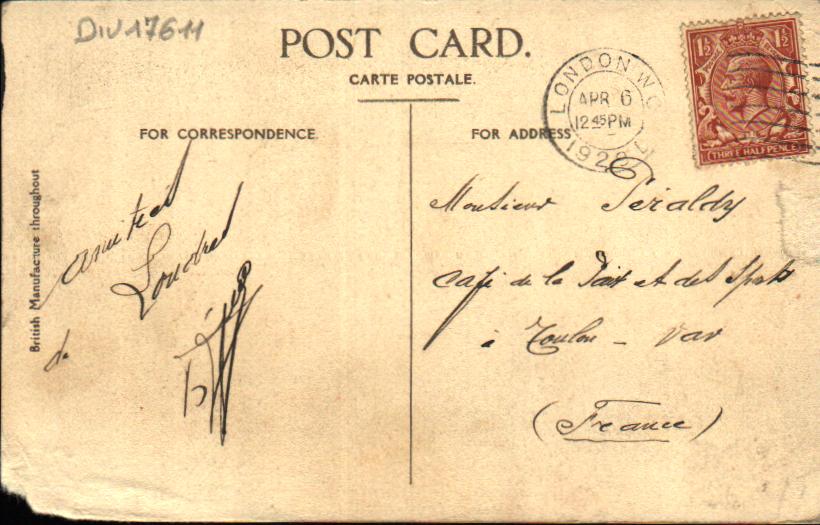 DIV17611
POST CARD.
CARTE POSTALE.
LONDON W.C.
APR 6
12 45 PM
1½ 1½
THREE HALFPENCE
FOR CORRESPONDENCE.
FOR ADDRESS
British Manufacture throughout
amitiés
de Londres
Monsieur Péraldy
Café de la Paix et des Sports
à Toulon - Var
(France)